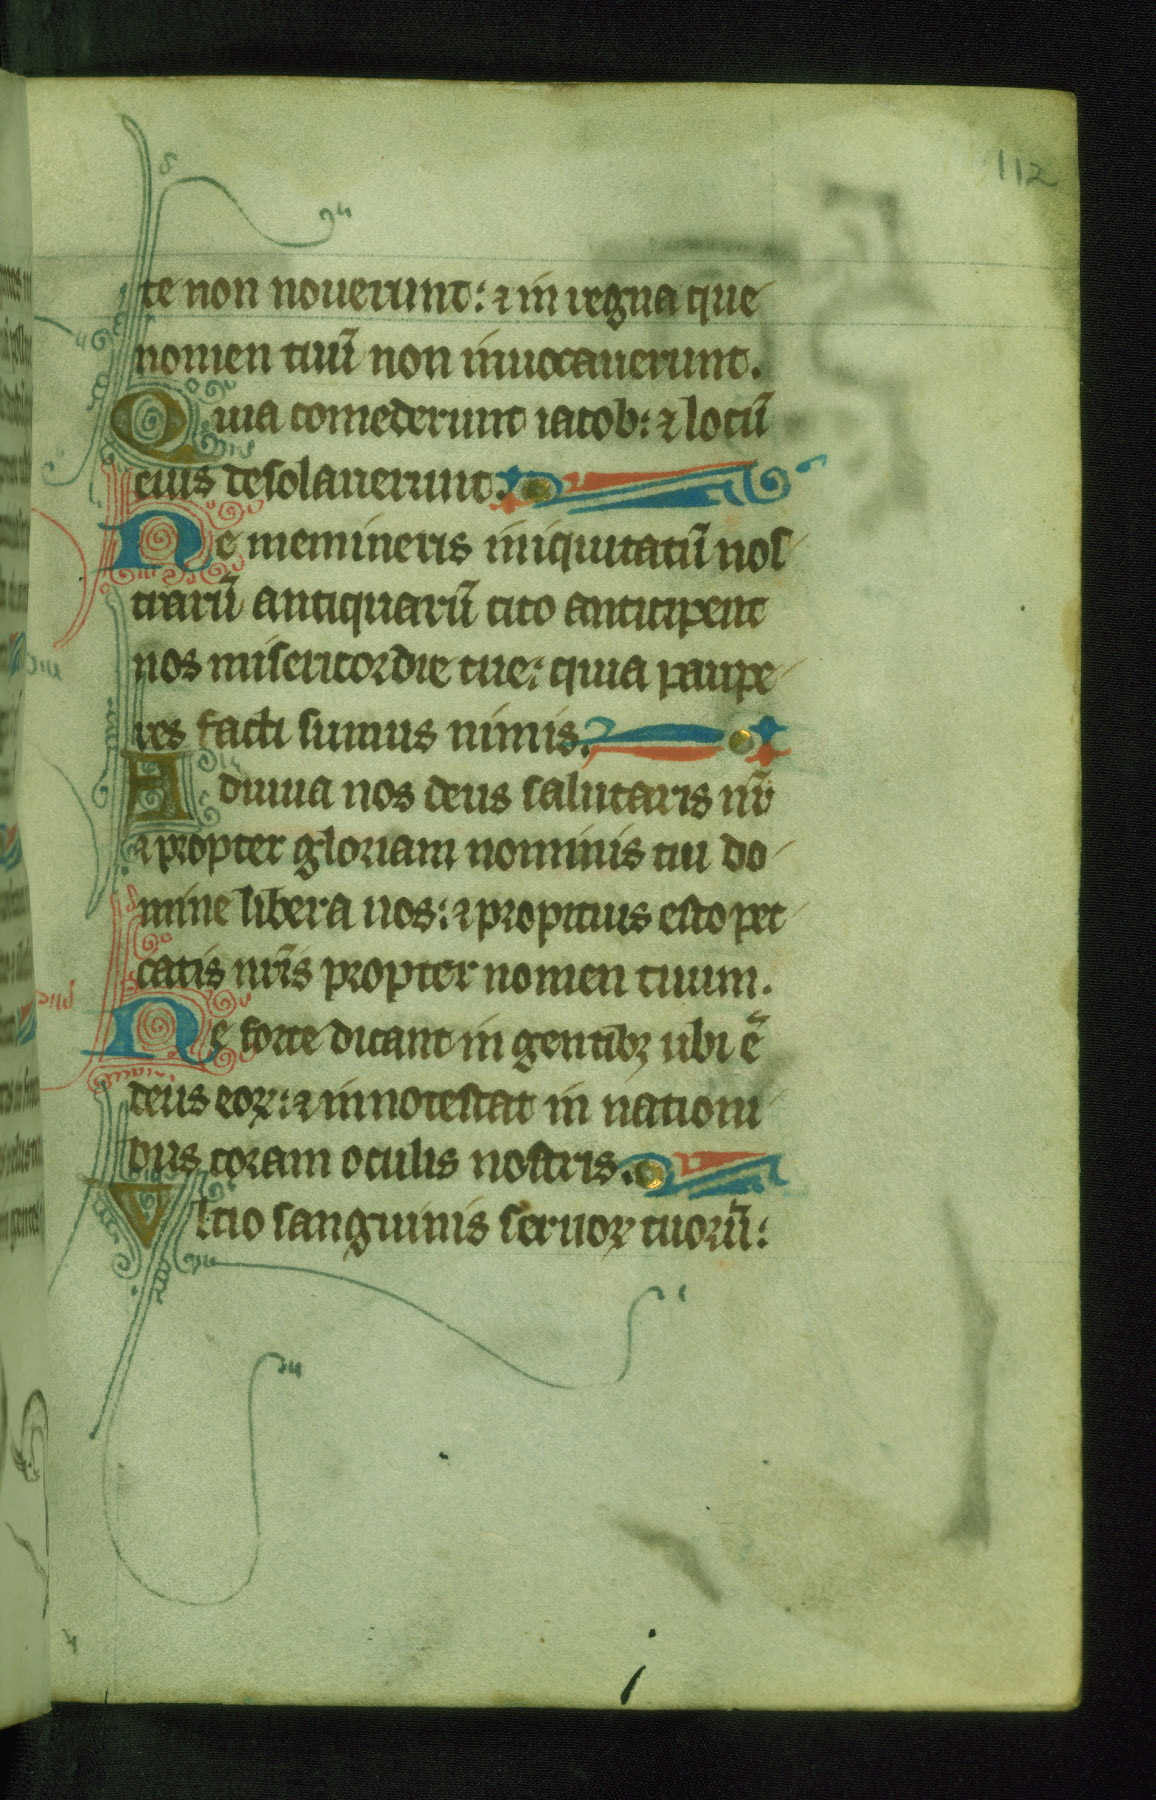 112
te non nouerunt: ⁊ in regna que
nomen tuū non inuocauerunt.
Quia comederunt iacob: ⁊ locū
eius desolauerunt.
Ne memineris iniquitatū nos
trarū antiquarū cito anticipent
nos misericordie tue: quia paupe
res facti sumus nimis.
Adiuua nos deus salutaris nr̄
⁊ propter gloriam nominis tui do
mine libera nos: ⁊ propicius esto pec
catis nr̄is propter nomen tuum.
Ne forte dicant in gentibꝫ ubi ē
deus eoꝝ: ⁊ innotescat in nationi
bus coram oculis nostris.
Vltio sanguinis seruoꝝ tuorū: